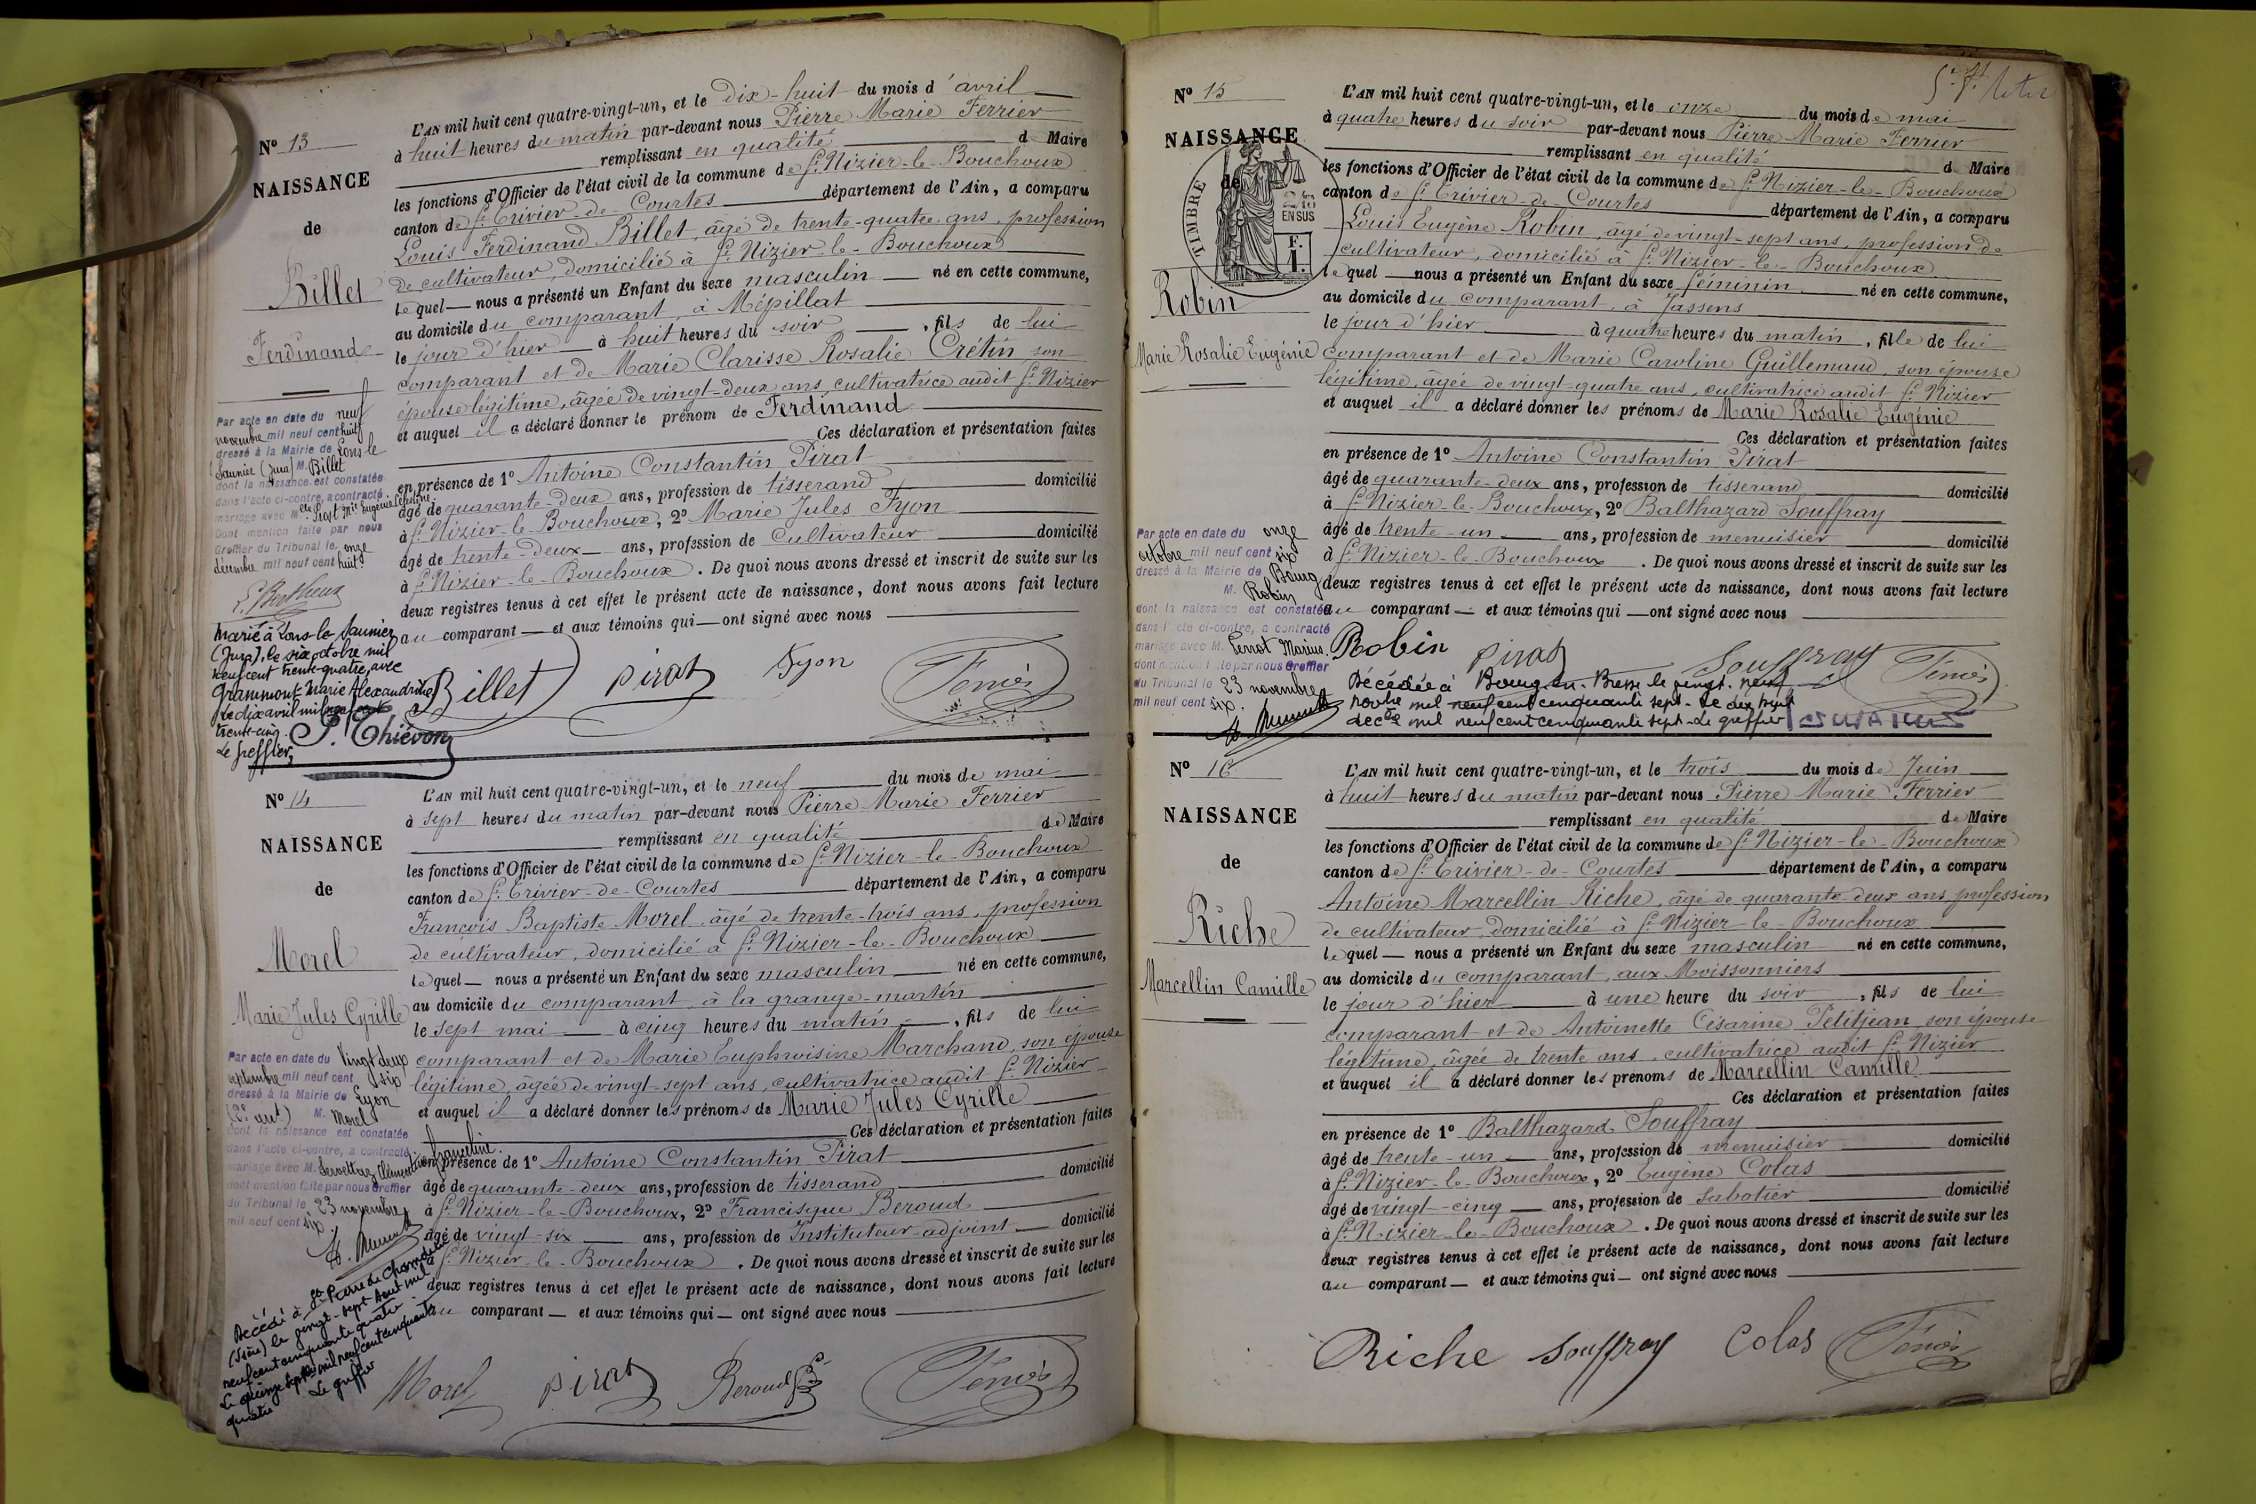 N° 13
NAISSANCE
de
Billet
Ferdinand
L'AN mil huit cent quatre-vingt-un, et le dix-huit du mois d'avril
à huit heures du matin par-devant nous Pierre Marie Ferrier
remplissant en qualité de Maire
les fonctions d'Officier de l'état civil de la commune de St Nizier-le-Bouchoux
canton de St Trivier-de-Courtes département de l'Ain, a comparu
Louis Ferdinand Billet, âgé de trente-quatre ans, profession
de cultivateur, domicilié à St Nizier-le-Bouchoux
lequel nous a présenté un Enfant du sexe masculin né en cette commune,
au domicile du comparant, à Mépillat
le jour d'hier à huit heures du soir, fils de lui
comparant et de Marie Clarisse Rosalie Crétin son
épouse légitime, âgée de vingt-deux ans, cultivatrice audit St Nizier
et auquel il a déclaré donner le prénom de Ferdinand
Ces déclaration et présentation faites
en présence de 1° Antoine Constantin Pirat
âgé de quarante-deux ans, profession de tisserand domicilié
à St Nizier-le-Bouchoux, 2° Marie Jules Fyon
âgé de trente-deux ans, profession de Cultivateur domicilié
à St Nizier-le-Bouchoux. De quoi nous avons dressé et inscrit de suite sur les
deux registres tenus à cet effet le présent acte de naissance, dont nous avons fait lecture
au comparant et aux témoins qui ont signé avec nous
Billet Pirat Fyon
Par acte en date du neuf
novembre mil neuf cent huit
dressé à la Mairie de Lons le
Saunier (Jura) M. Billet
dont la naissance est constatée
dans l'acte ci-contre, a contracté
mariage avec Melle
Dont mention faite par nous
Greffier du Tribunal le onze
décembre mil neuf cent huit
Marié à Lons-le-Saunier
(Jura), le six octobre mil
neuf cent trente-quatre, avec
Grammont Marie Alexandrine
Le dix avril mil neuf cent
trente-cinq.
Le greffier,
P. Thiévon
N° 14
NAISSANCE
de
Morel
Marie Jules Cyrille
L'AN mil huit cent quatre-vingt-un, et le neuf du mois de mai
à sept heures du matin par-devant nous Pierre Marie Ferrier
remplissant en qualité de Maire
les fonctions d'Officier de l'état civil de la commune de St Nizier-le-Bouchoux
canton de St Trivier-de-Courtes département de l'Ain, a comparu
François Baptiste Morel, âgé de trente-trois ans, profession
de cultivateur, domicilié à St Nizier-le-Bouchoux
lequel nous a présenté un Enfant du sexe masculin né en cette commune,
au domicile du comparant, à la grange-martin
le sept mai à cinq heures du matin, fils de lui
comparant et de Marie Euphroisine Marchand, son épouse
légitime, âgée de vingt-sept ans, cultivatrice audit St Nizier
et auquel il a déclaré donner les prénoms de Marie Jules Cyrille
Ces déclaration et présentation faites
en présence de 1° Antoine Constantin Pirat
âgé de quarante-deux ans, profession de tisserand domicilié
à St Nizier-le-Bouchoux, 2° Francisque Beroud
âgé de vingt-six ans, profession de Instituteur-adjoint domicilié
à St Nizier-le-Bouchoux. De quoi nous avons dressé et inscrit de suite sur les
deux registres tenus à cet effet le présent acte de naissance, dont nous avons fait lecture
au comparant et aux témoins qui ont signé avec nous
Morel Pirat Beroud
Par acte en date du vingt deux
septembre mil neuf cent six
dressé à la Mairie de Lyon
(2e arrt) M. Morel
dont la naissance est constatée
dans l'acte ci-contre, a contracté
mariage avec M.
dont mention faite par nous Greffier
du Tribunal le 23 novembre
mil neuf cent six
Décédé à St Pierre de Chandieu
(Isère) le vingt-sept Août mil
neuf cent cinquante quatre
Le quinze septbre mil neuf cent cinquante
quatre Le greffier
N° 15
NAISSANCE
de
TIMBRE
EN SUS
Robin
Marie Rosalie Eugénie
L'AN mil huit cent quatre-vingt-un, et le onze du mois de mai
à quatre heures du soir par-devant nous Pierre Marie Ferrier
remplissant en qualité de Maire
les fonctions d'Officier de l'état civil de la commune de St Nizier-le-Bouchoux
canton de St Trivier-de-Courtes département de l'Ain, a comparu
Louis Eugène Robin, âgé de vingt-sept ans, profession de
cultivateur, domicilié à St Nizier-le-Bouchoux
lequel nous a présenté un Enfant du sexe féminin né en cette commune,
au domicile du comparant, à Jassens
le jour d'hier à quatre heures du matin, fille de lui
comparant et de Marie Caroline Guillemaud, son épouse
légitime, âgée de vingt-quatre ans, cultivatrice audit St Nizier
et auquel il a déclaré donner les prénoms de Marie Rosalie Eugénie
Ces déclaration et présentation faites
en présence de 1° Antoine Constantin Pirat
âgé de quarante-deux ans, profession de tisserand domicilié
à St Nizier-le-Bouchoux, 2° Balthazard Souffray
âgé de trente-un ans, profession de menuisier domicilié
à St Nizier-le-Bouchoux. De quoi nous avons dressé et inscrit de suite sur les
deux registres tenus à cet effet le présent acte de naissance, dont nous avons fait lecture
au comparant et aux témoins qui ont signé avec nous
Robin Pirat Souffray
Par acte en date du onze
octobre mil neuf cent six
dressé à la Mairie de Bourg
M. Robin
dont la naissance est constatée
dans l'acte ci-contre, a contracté
mariage avec M. Perrot Marius.
dont mention faite par nous Greffier
du Tribunal le 23 novembre
mil neuf cent six.
Décédée à Bourg-en-Bresse le vingt-neuf
novbre mil neuf cent cinquante sept - Le dix huit
decbre mil neuf cent cinquante sept - Le greffier
N° 16
NAISSANCE
de
Riche
Marcellin Camille
L'AN mil huit cent quatre-vingt-un, et le trois du mois de Juin
à huit heures du matin par-devant nous Pierre Marie Ferrier
remplissant en qualité de Maire
les fonctions d'Officier de l'état civil de la commune de St Nizier-le-Bouchoux
canton de St Trivier-de-Courtes département de l'Ain, a comparu
Antoine Marcellin Riche, âgé de quarante-deux ans profession
de cultivateur, domicilié à St Nizier-le-Bouchoux
lequel nous a présenté un Enfant du sexe masculin né en cette commune,
au domicile du comparant, aux Moissonniers
le jour d'hier à une heure du soir, fils de lui
comparant et de Antoinette Césarine Petitjean son épouse
légitime, âgée de trente ans, cultivatrice audit St Nizier
et auquel il a déclaré donner les prénoms de Marcellin Camille
Ces déclaration et présentation faites
en présence de 1° Balthazard Souffray
âgé de trente-un ans, profession de menuisier domicilié
à St Nizier-le-Bouchoux, 2° Eugène Colas
âgé de vingt-cinq ans, profession de Sabotier domicilié
à St Nizier-le-Bouchoux. De quoi nous avons dressé et inscrit de suite sur les
deux registres tenus à cet effet le présent acte de naissance, dont nous avons fait lecture
au comparant et aux témoins qui ont signé avec nous
Riche Souffray Colas